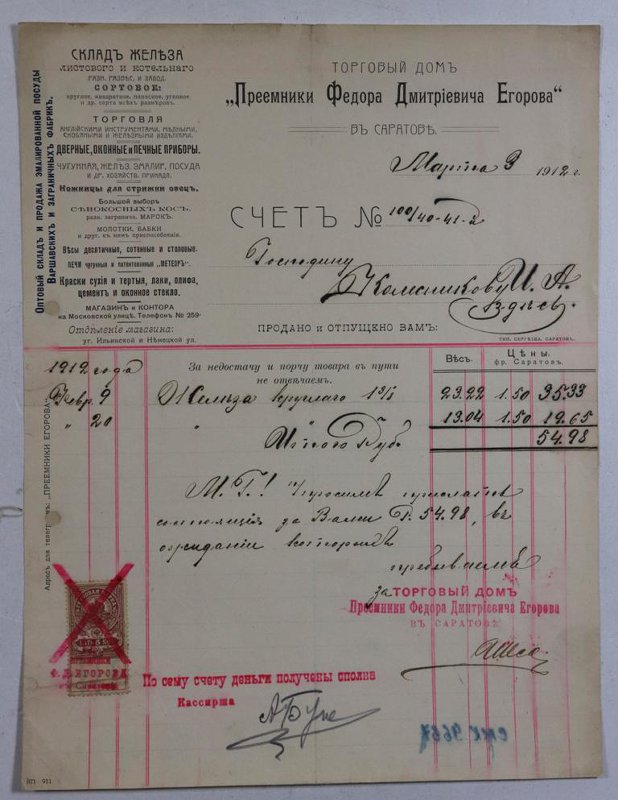 Оптовый складъ и продажа эмалированной посуды
Варшавскихъ и заграничныхъ фабрикъ.
СКЛАДЪ ЖЕЛѢЗА
листового и котельнаго
СОРТОВОЕ:
круглое, квадратное, полосное, угловое
и др. сорта всѣхъ размѣровъ.
ТОРГОВЛЯ
АНГЛІЙСКИМИ ИНСТРУМЕНТАМИ, МѢДНЫМИ,
СКОБЯНЫМИ И ЖЕЛѢЗНЫМИ ИЗДѢЛІЯМИ.
ДВЕРНЫЕ, ОКОННЫЕ и ПЕЧНЫЕ ПРИБОРЫ.
ЧУГУННАЯ, ЖЕЛѢЗ. ЭМАЛИР. ПОСУДА
И ДР. ХОЗЯЙСТВ. ПРИНАДЛ.
Ножницы для стрижки овецъ.
Большой выборъ
СѢНОКОСНЫХЪ КОСЪ,
разн. загранич. МАРОКЪ.
МОЛОТКИ, БАБКИ
и друг. къ нимъ приспособленія.
Вѣсы десятичные, сотенные и столовые.
ПЕЧИ чугунныя и патентованныя „МЕТЕОРЪ".
Краски сухія и тертыя, лаки, олифа,
цементъ и оконное стекло.
МАГАЗИНЪ и КОНТОРА
на Московской улицѣ. Телефонъ № 259
Отдѣленіе магазина:
уг. Ильинской и Нѣмецкой ул.
ТОРГОВЫЙ ДОМЪ
„Преемники Федора Дмитріевича Егорова"
ВЪ САРАТОВѢ.
Марта 9 1912 г.
СЧЕТЪ № 100/40-41-2
Господину
Колесникову И. А.
Здѣсь.
ПРОДАНО и ОТПУЩЕНО ВАМЪ:
ТИП. СЕРГѢЕВА, САРАТОВЪ.
За недостачу и порчу товара въ пути
не отвѣчаемъ.
Вѣсъ.
Цѣны.
фр. Саратовъ.
1912 года
Февр. 9 Желѣза круглаго 23.22 1.50 35.33
" 20 " " 13.04 1.50 19.65
Итого Руб. 54.98
М. Г.! Просимъ прислать
состоящія за Вами Р. 54.98, въ
ожиданіи которыхъ
пребываемъ
за ТОРГОВЫЙ ДОМЪ
Преемники Федора Дмитріевича Егорова
ВЪ САРАТОВѢ
Адресъ для телеграммъ: „ПРЕЕМНИКИ ЕГОРОВА".
ПРЕЕМНИКИ
Ф. Д. ЕГОРОВА
въ Саратовѣ
По сему счету деньги получены сполна
Кассирша